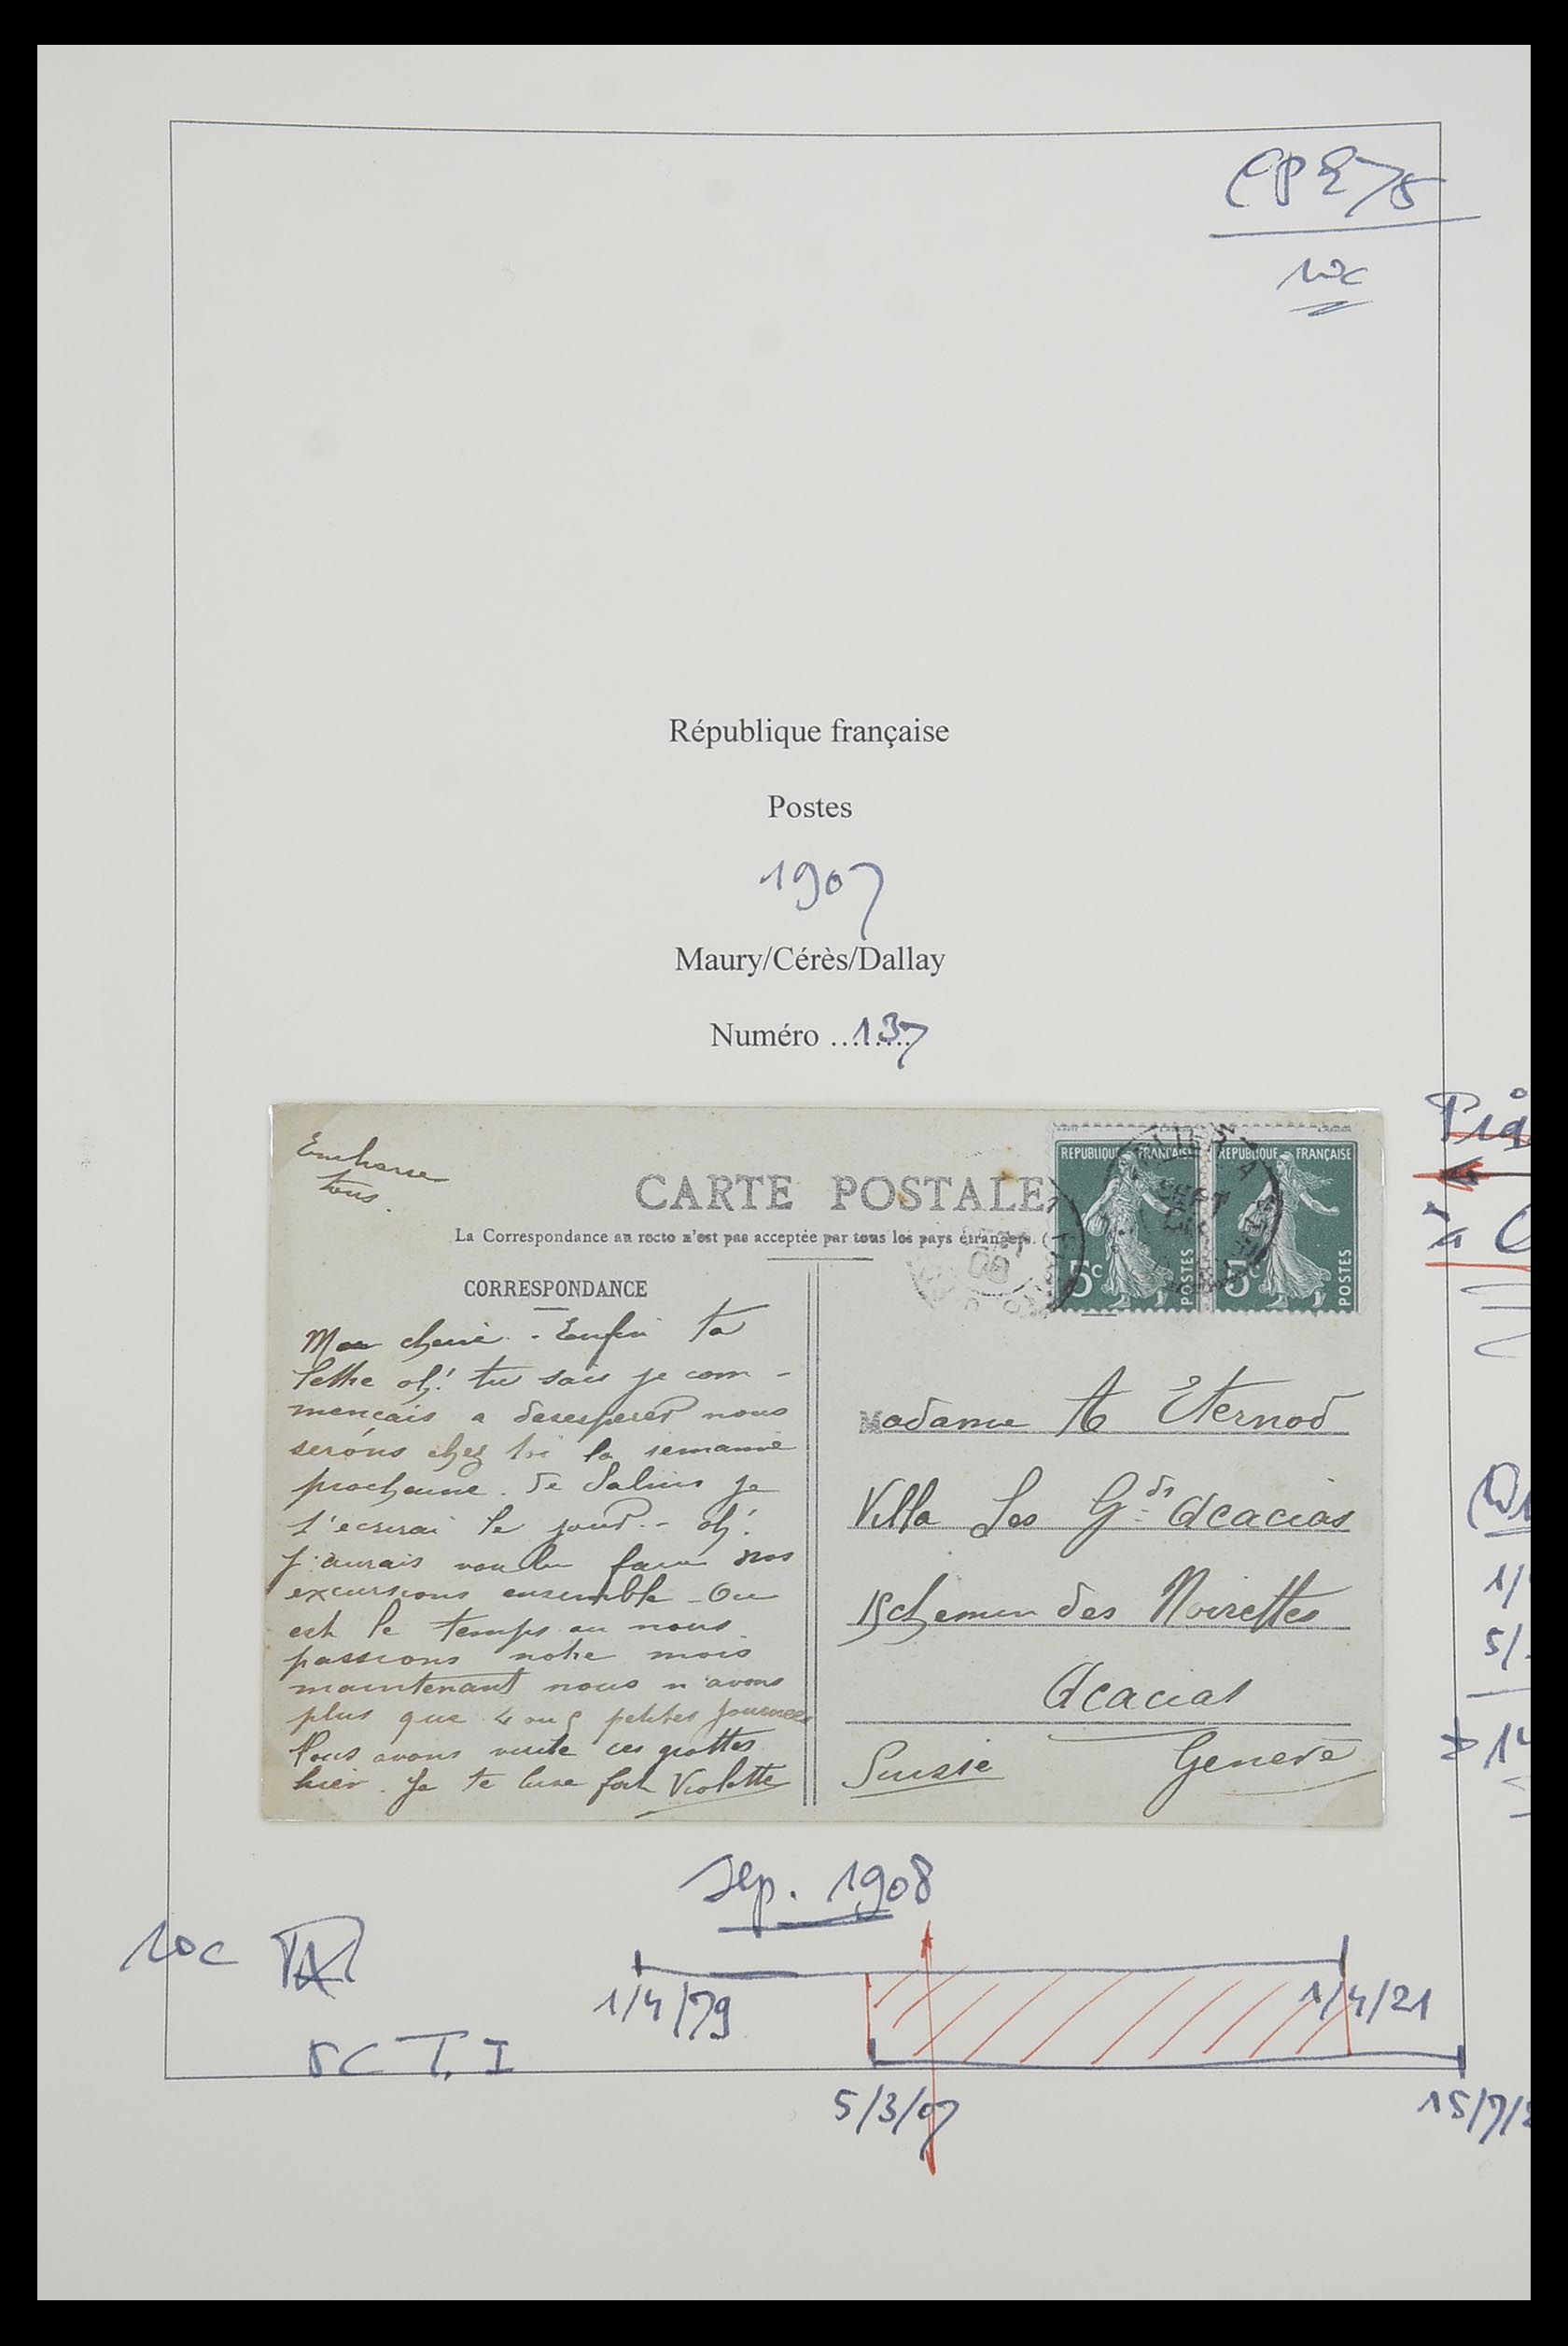 CPE 75
10c
République française
Postes
1907
Maury/Cérès/Dallay
Numéro ........137
Embrasse
tous.
CARTE POSTALE
La Correspondance au recto n'est pas acceptée par tous les pays étrangers.
REPUBLIQUE FRANÇAISE
5c
POSTES
REPUBLIQUE FRANÇAISE
5c
POSTES
08
CORRESPONDANCE
Ma cherie. - Enfin ta
lettre oh! tu sais je com-
mencais a desesperer nous
serons chez toi la semaine
prochaine. de Salins je
t'ecrirai le jour. - oh!
j'aurais voulu faire nos
excursions ensemble - Ou
est le temps ou nous
passions notre mois
maintenant nous n'avons
plus que 4 ou 5 petites journees
Nous avons visite ces grottes
hier. Je te bise fort Violette
Madame A Eternod
Villa Les Gds Acacias
15 chemin des Noirettes
Acacias
Suisse Geneve
sep. 1908
10c
1/4/79
1/4/21
5c T. I
5/3/07
15/7/2
1/
5/
14